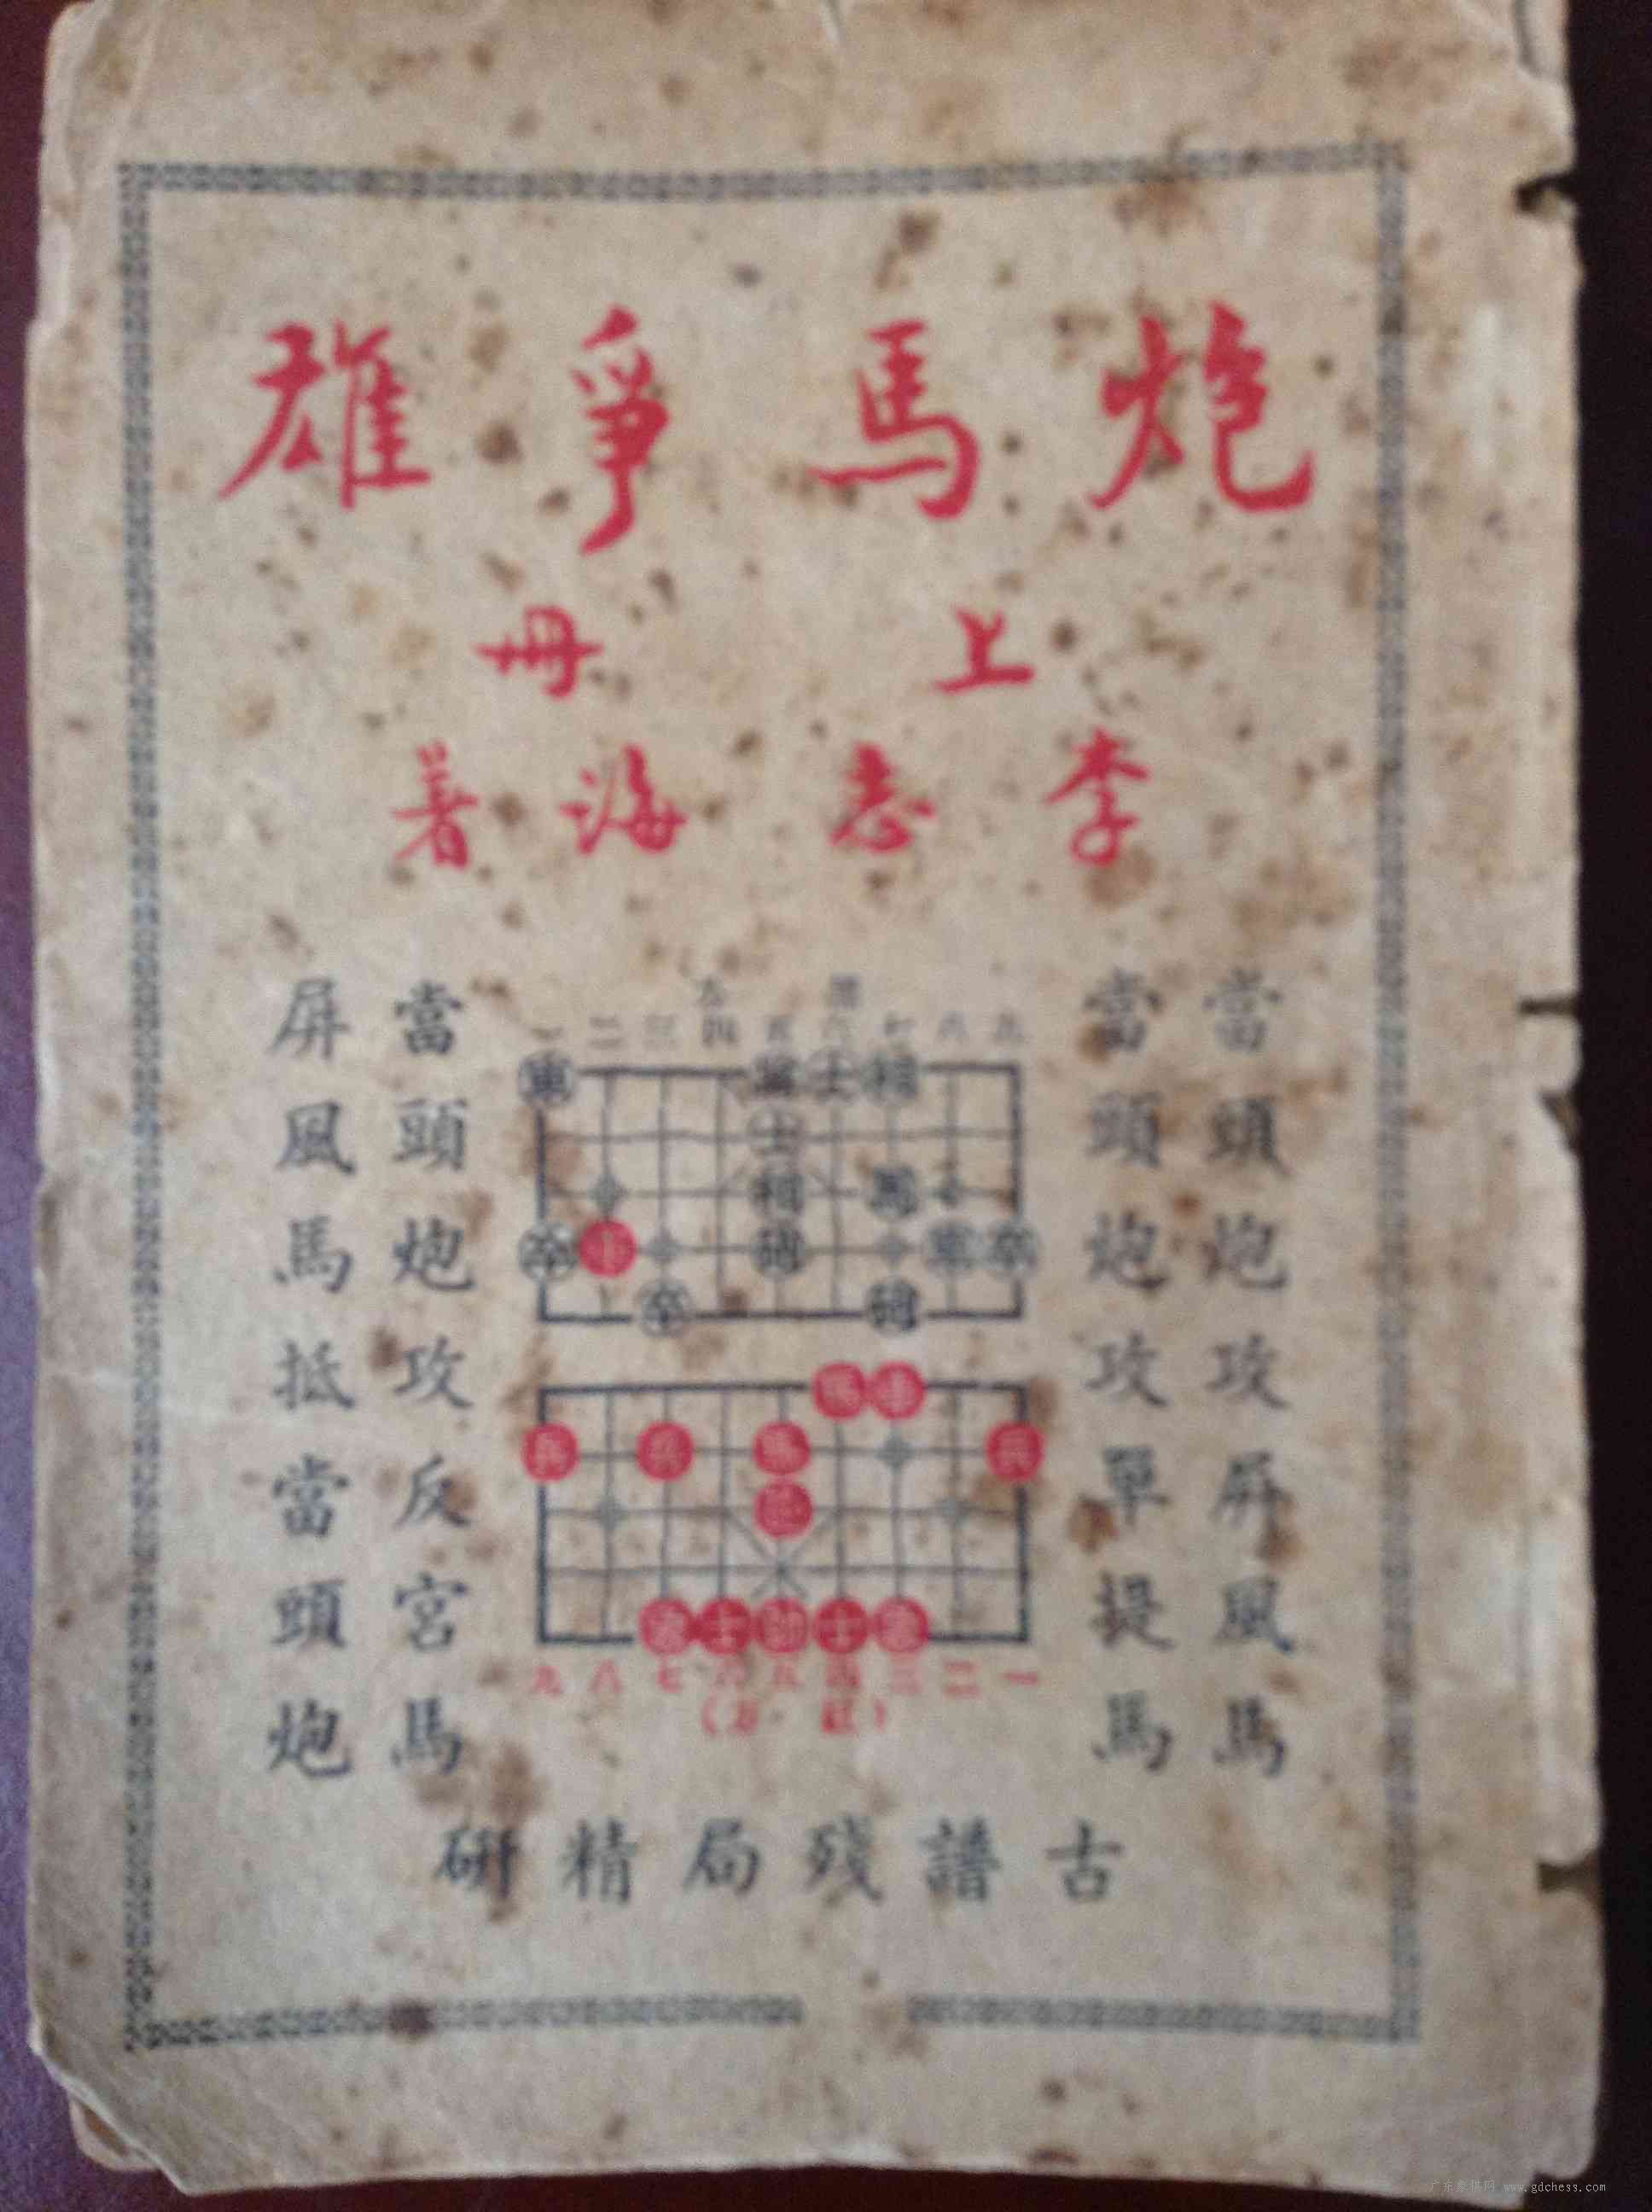 炮馬爭雄
上冊
李志海著
當頭炮攻屏風馬
當頭炮攻單提馬
當頭炮攻反宮馬
屏風馬抵當頭炮
一二三四五六七八九
車 將士相
士
相 馬
卒 車 砲 車卒
卒 砲
馬車
兵 兵 馬 兵
炮
相士帥士相
九八七六五四三二一
(方 紅)
古譜殘局精研
广东象棋网 www.gdchess.com